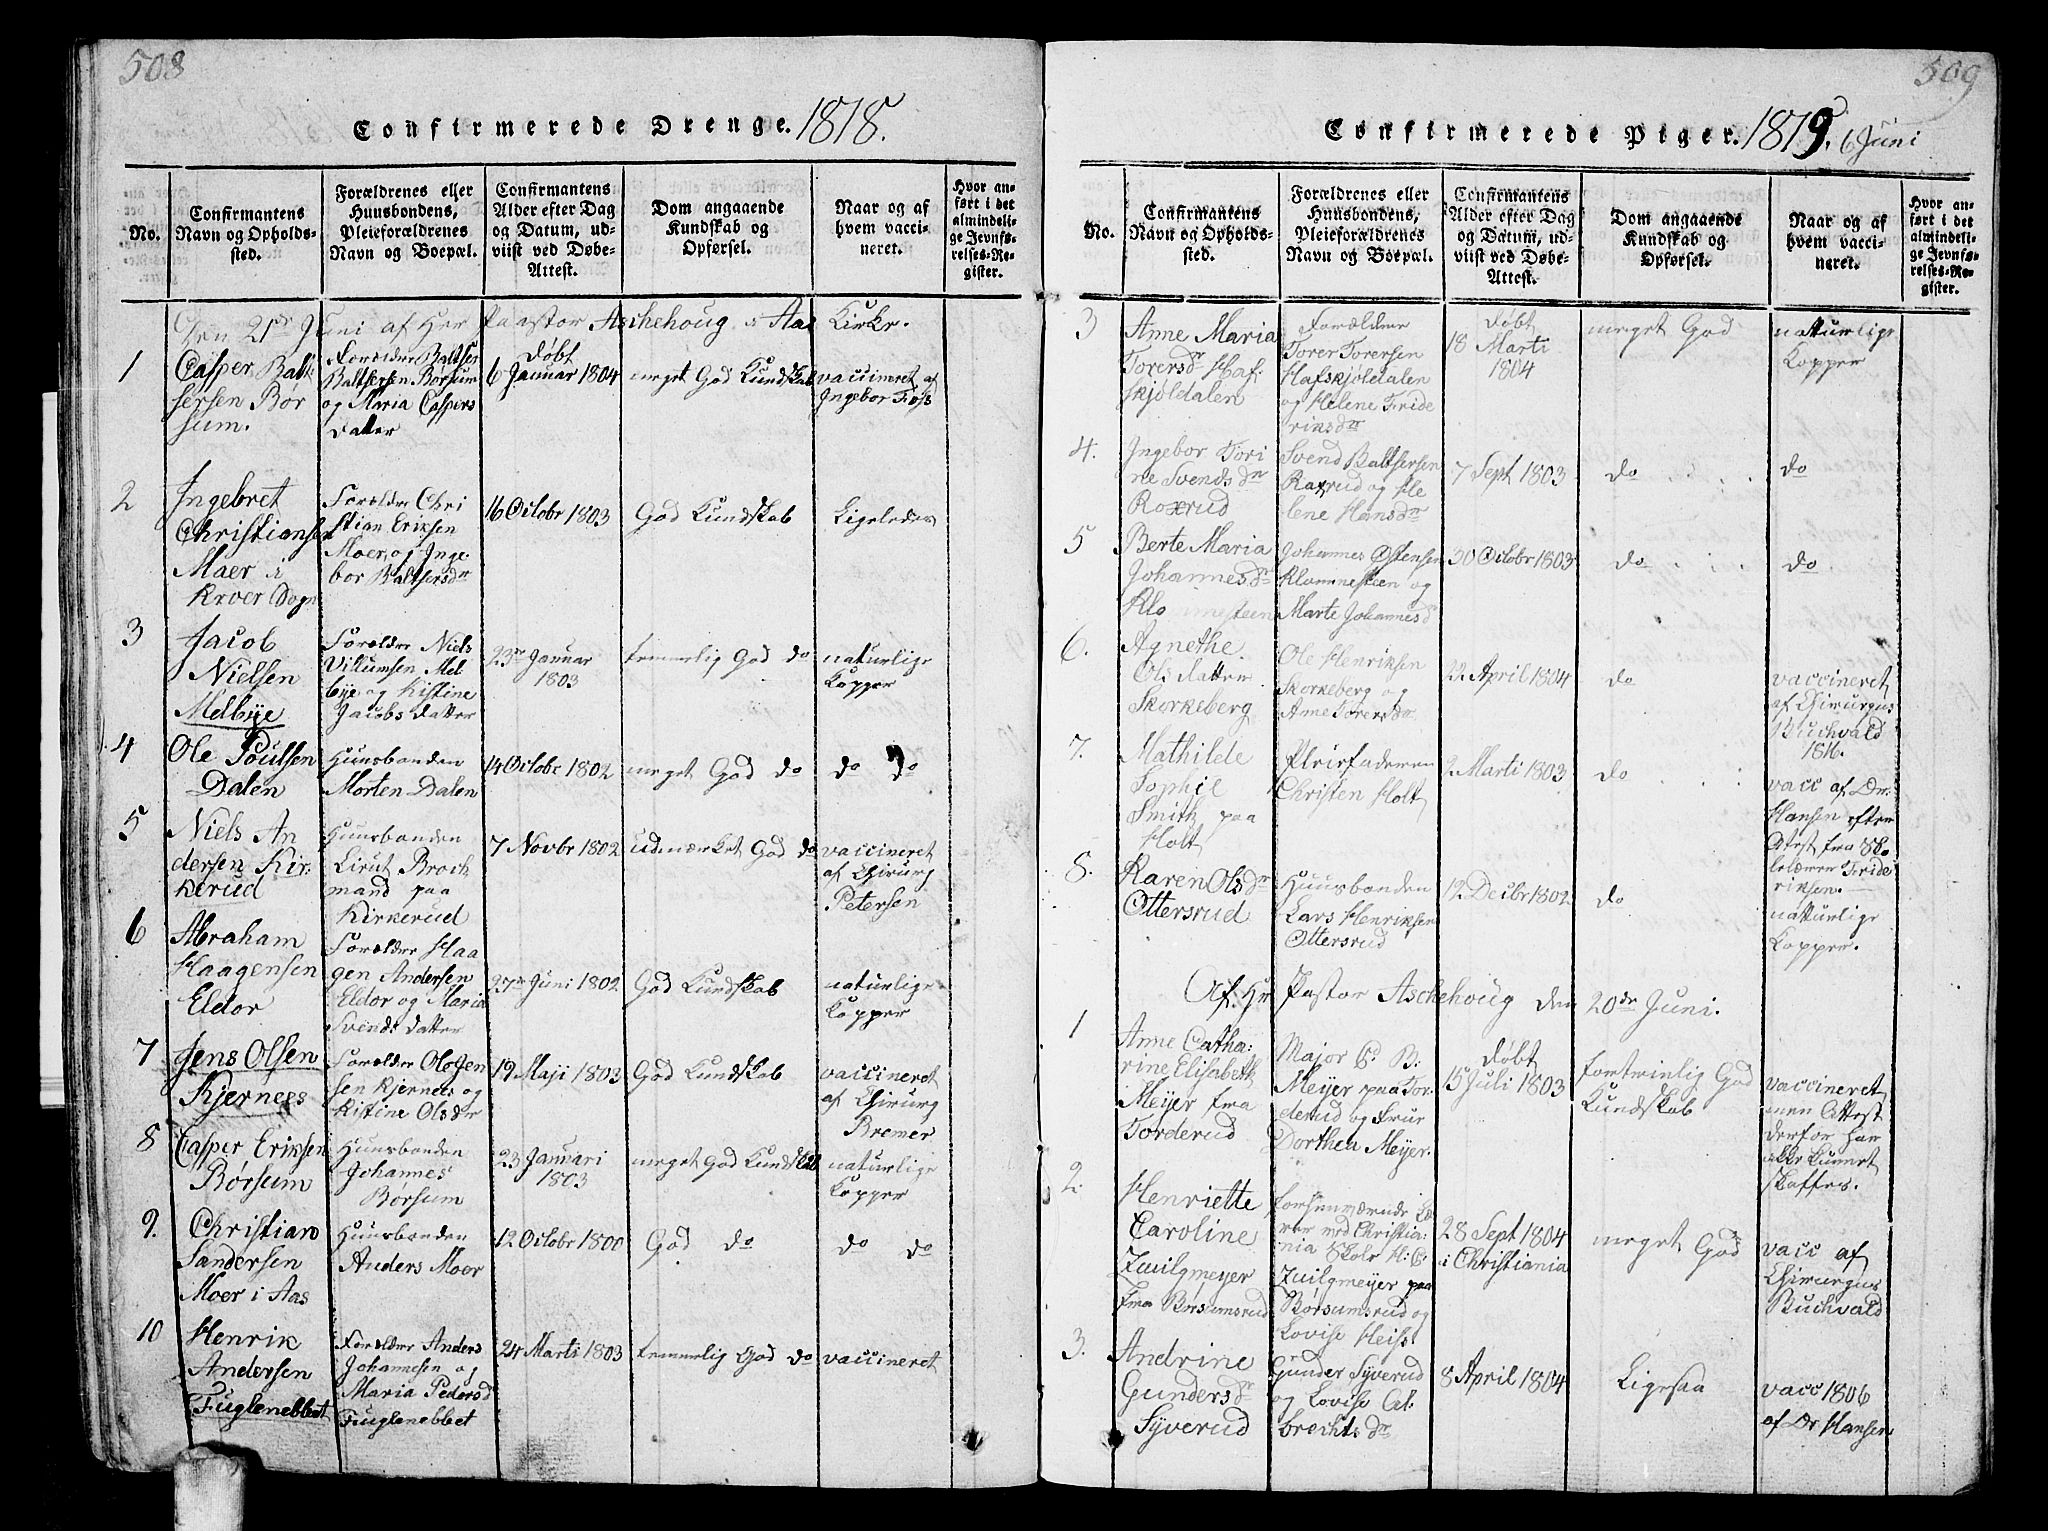 508
Confirmerede Drenge. 1818.
No.
Confirmantens
Navn og Opholds-
sted.
Forældrenes eller
Huusbondens,
Pleieforældrenes
Navn og Boepæl.
Confirmantens
Alder efter Dag
og Datum, ud-
viist ved Døbe-
Attest.
Dom angaaende
Kundskab og
Opførsel.
Naar og af
hvem vacci-
neret.
Hvor an-
ført i det
almindeli-
ge Jevnfø-
relses-Re-
gister.
Den 21de Juni af Her Paastor Aschehoug i Aas Kirke.
1
Casper Balt
sersen Bor
sum.
Forældre Baltser
Baltsersen Børsum
og Maria Caspers
datter
Døbt
6 Januar 1804
meget God Kundskab
vaccineret af
Ingebor Foss
2
Ingebret
Christiansen
Maer i
Kroer Sogn
Forældre Chri
stian Eriksen
Moer og Inge
bor Baltsersdr
16 Octobr 1803
God Kundskab
Ligeledes
3
Jacob
Nielsen
Melbye
Forældre Niels
Villumsen Mel
bye og Kistine
Jacobs datter
23de Januar
1803
temmelig God do
naturlige
Kopper
4
Ole Poulsen
Dalen
Huusbonden
Morten Dalen
14 Octobr 1802
meget God do
do do
5
Niels An
dersen Kir-
kerud
Huusbonden
Lieut Brock
mand paa
Kirkerud
7 Novbr 1802
udmærket God do
vaccineret
af Chirurg
Petersen
6
Abraham
Haagensen
Eldor
Forældre Haa
gen Andersen
Eldor og Maria
Svends datter
27de Juni 1802
God Kundskab
naturlige
Kopper
7
Jens Olsen
Kjernees
Forældre Ole Jen
sen Kjernees og
Kistine Olsdr
19 Maji 1803
God Kundskab
vaccineret
af Chirurg
Bremer
8
Casper Eriksen
Børsum
Huusbonden
Johannes
Børsum
23 Januari
1803
meget God Kundskab
naturlige
Kopper
9.
Christian
Sandersen
Moer i Aas
Huusbonden
Anders Moer
12 Octobr 1800
God do
do do
10
Henrik
Andersen
Fuglenebbet
Forældre Anders
Johannesen og
Maria Pedersd
Fuglenebbet
24 Marti 1803
temmelig God do
vaccineret
509
Confirmerede Piger. 1819. 6 Juni
No.
Confirmantens
Navn og Opholds-
sted.
Forældrenes eller
Huusbondens,
Pleieforældrenes
Navn og Boepæl.
Confirmantens
Alder efter Dag
og Datum, ud-
viist ved Døbe-
Attest.
Dom angaaende
Kundskab og
Opførsel.
Naar og af
hvem vacci-
neret.
Hvor an-
ført i det
almindeli-
ge Jevnfø-
relses-Re-
gister.
3
Anne Maria
Torersdr Haf-
skjoldalen
Forældre
Torer Torersen
Hafskjoldalen
og Helene Fride
riksdr
Døbt
18 Marti
1804
meget God
naturlige
Kopper
4.
Ingebor Tori
ne Svendsdr
Roxrud
Svend Baltsersen
Roxrud og He
lene Hansdr
7 Sept 1803
do
do
5
Berte Maria
Johannesdr
Klommesteen
Johannes Ostensen
Klommesteen og
Marte Johannesd
30 Octobr 1803
do
do
6.
Agnethe
Olsdatter
Skorkeberg
Ole Henriksen
Skorkeberg og
Anne Torersdr
22 April 1804
do
vaccineret
af Chirurgus
Buchvald
1816.
7.
Mathilde
Sophie
Smith paa
Holt
Pleiefaderen
Christen Holt
2 Marti 1803
do
vacc af Dr:
Hansen efter
Attest fra Sko
lelærer Fride
riksen.
8.
Karen Olsdr
Ottersrud
Huusbonden
Lars Henriksen
Ottersrud
12 Decbr 1802
do
naturlige
Kopper.
Af Hr Pastor Aschehoug den 20de Juni.
1
Anne Catha-
rine Elisabeth
Meyer fra
Torderud
Major C: B:
Meyer paa Tor-
derud og Frue
Dorthea Meyer.
Døbt
15 Juli 1803
fortrinlig God
Kundskab
vaccineret
men Attest
derfor har
ikke kunnet
skaffes.
2.
Henriette
Caroline
Zwilgmeyer
fra Børsumsrud
forhenværende Læ
rer ved Christia-
nia Skole H: C:
Zwilgmeyer paa
Børsumsrud og
Lovise Heiss
28 Sept 1804
i Christiania
meget God
vacc af
Chirurgus
Buchvald
3.
Andrine
Gundersdr
Syverud
Gunder Syverud
og Lovise Al-
brechtsdr
8 April 1804
Ligesaa
vacc 1806
af Dr Hansen